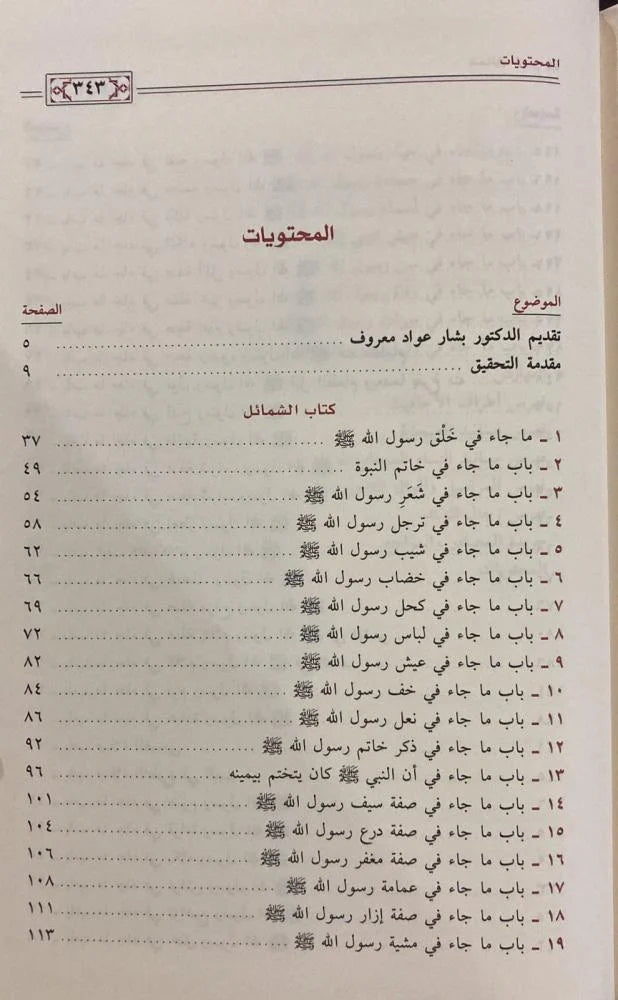 المحتويات
٣٤٣
المحتويات
الموضوع الصفحة
تقديم الدكتور بشار عواد معروف ................................ ٥
مقدمة التحقيق ................................ ٩
كتاب الشمائل
١ ـ ما جاء في خَلْق رسول الله ﷺ ................................ ٣٧
٢ ـ باب ما جاء في خاتم النبوة ................................ ٤٩
٣ ـ باب ما جاء في شَعَرِ رسول الله ﷺ ................................ ٥٤
٤ ـ باب ما جاء في ترجل رسول الله ﷺ ................................ ٥٨
٥ ـ باب ما جاء في شيب رسول الله ﷺ ................................ ٦٢
٦ ـ باب ما جاء في خضاب رسول الله ﷺ ................................ ٦٦
٧ ـ باب ما جاء في كحل رسول الله ﷺ ................................ ٦٩
٨ ـ باب ما جاء في لباس رسول الله ﷺ ................................ ٧٢
٩ ـ باب ما جاء في عيش رسول الله ﷺ ................................ ٨٢
١٠ ـ باب ما جاء في خف رسول الله ﷺ ................................ ٨٤
١١ ـ باب ما جاء في نعل رسول الله ﷺ ................................ ٨٦
١٢ ـ باب ما جاء في ذكر خاتم رسول الله ﷺ ................................ ٩٢
١٣ ـ باب ما جاء في أن النبي ﷺ كان يتختم بيمينه ................................ ٩٦
١٤ ـ باب ما جاء في صفة سيف رسول الله ﷺ ................................ ١٠١
١٥ ـ باب ما جاء في صفة درع رسول الله ﷺ ................................ ١٠٤
١٦ ـ باب ما جاء في صفة مغفر رسول الله ﷺ ................................ ١٠٦
١٧ ـ باب ما جاء في عمامة رسول الله ﷺ ................................ ١٠٨
١٨ ـ باب ما جاء في صفة إزار رسول الله ﷺ ................................ ١١١
١٩ ـ باب ما جاء في مشية رسول الله ﷺ ................................ ١١٣